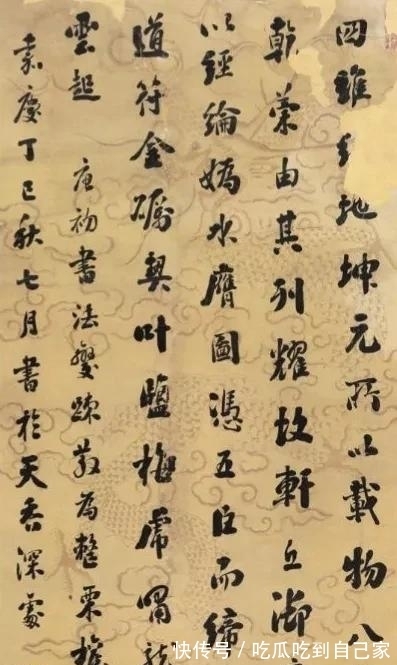 四維地坤元所以載物八
乾由其列耀故軒丘御
以經綸媯水膺圖憑五臣而締
道符金礪契叶鹽梅虎嘯
雲起 唐初書法變疎散為整栗
嘉慶丁巳秋七月書於天香深處
快传号/吃瓜吃到自己家